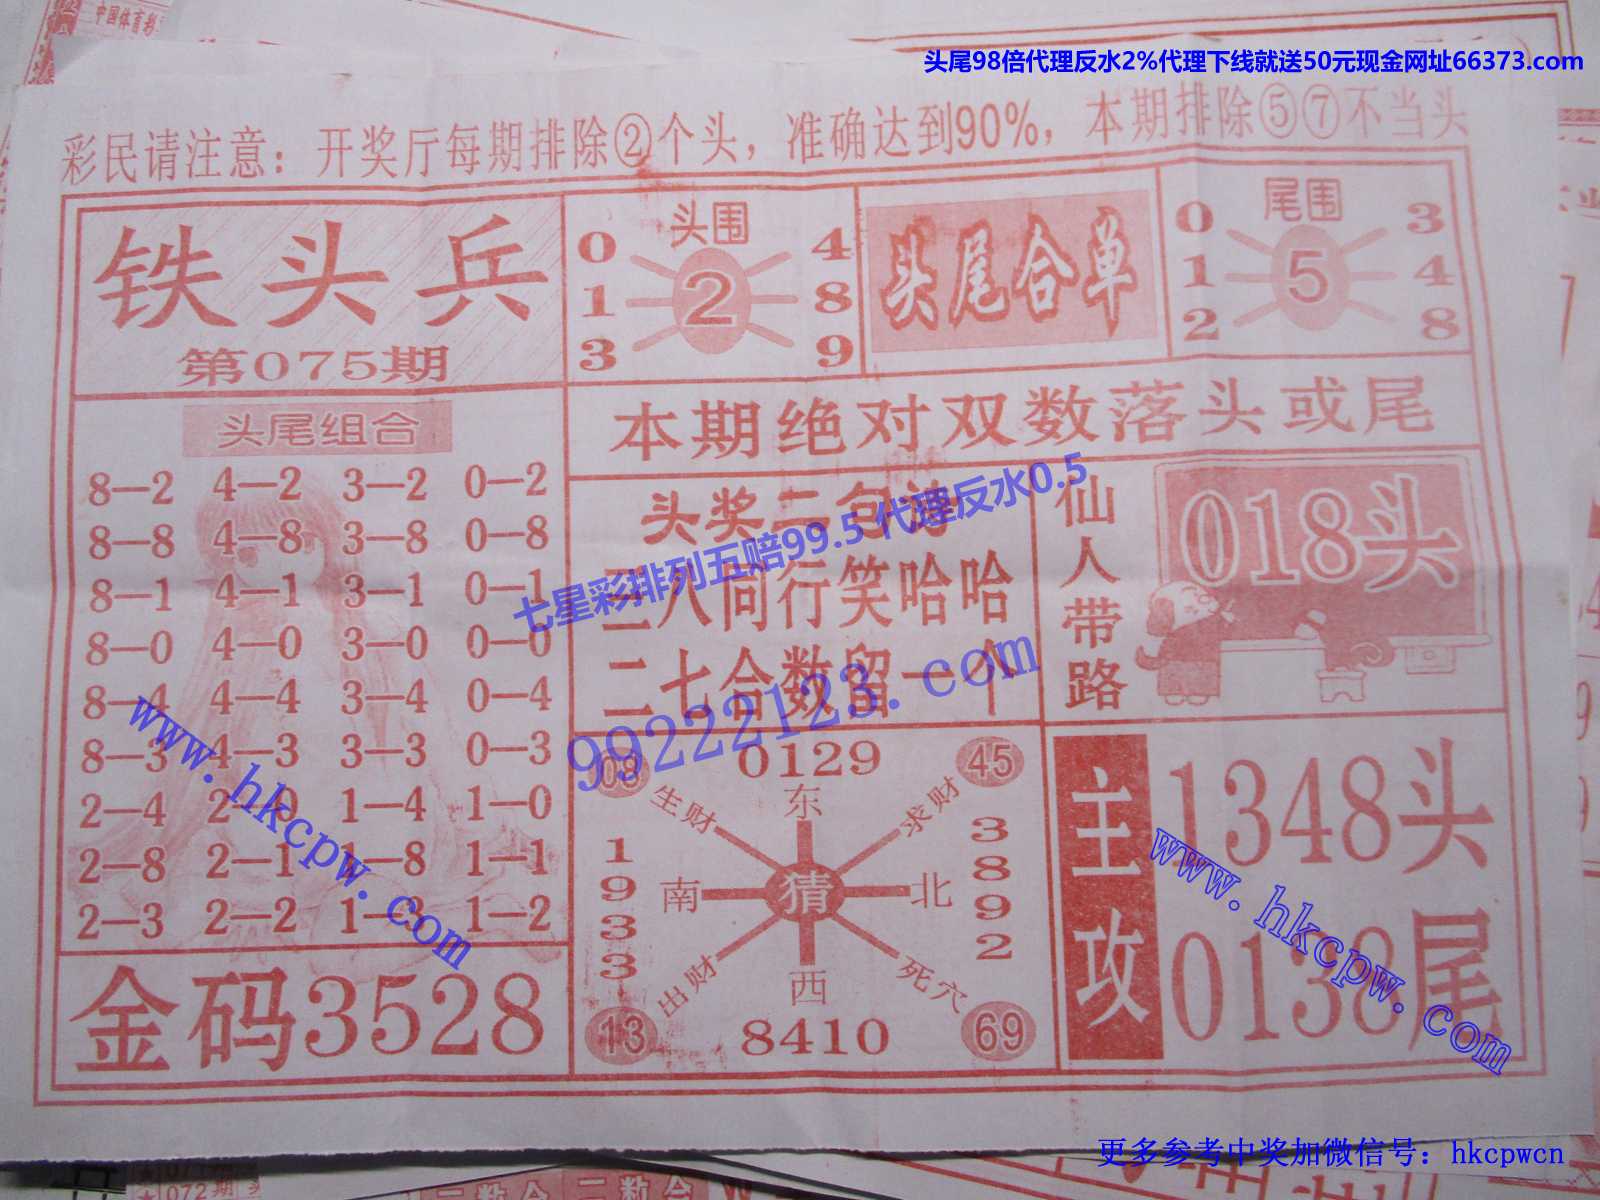 中国体育彩
头尾98倍代理反水2%代理下线就送50元现金网址66373.com
彩民请注意：开奖厅每期排除②个头，准确达到90%，本期排除⑤⑦不当头
铁头兵
第075期
头围
0 4
1 2 8
3 9
头尾合单
尾围
0 3
1 5 4
2 8
本期绝对双数落头或尾
头尾组合
8—2 4—2 3—2 0—2
8—8 4—8 3—8 0—8
8—1 4—1 3—1 0—1
8—0 4—0 3—0 0—0
8—4 4—4 3—4 0—4
8—3 4—3 3—3 0—3
2—4 2—0 1—4 1—0
2—8 2—1 1—8 1—1
2—3 2—2 1—3 1—2
金码3528
头奖二句诗
八同行笑哈哈
二七合数留一个
七星彩排列五赔99.5 代理反水0.5
99222123.com
仙人带路
018头
08 0129 45
生财 东 求财
1933 南 猜 北 3892
出财 西 死穴
13 8410 69
主攻
1348头
0138尾
www.hkcpw.com
www.hkcpw.com
更多参考中奖加微信号：hkcpwcn
072期